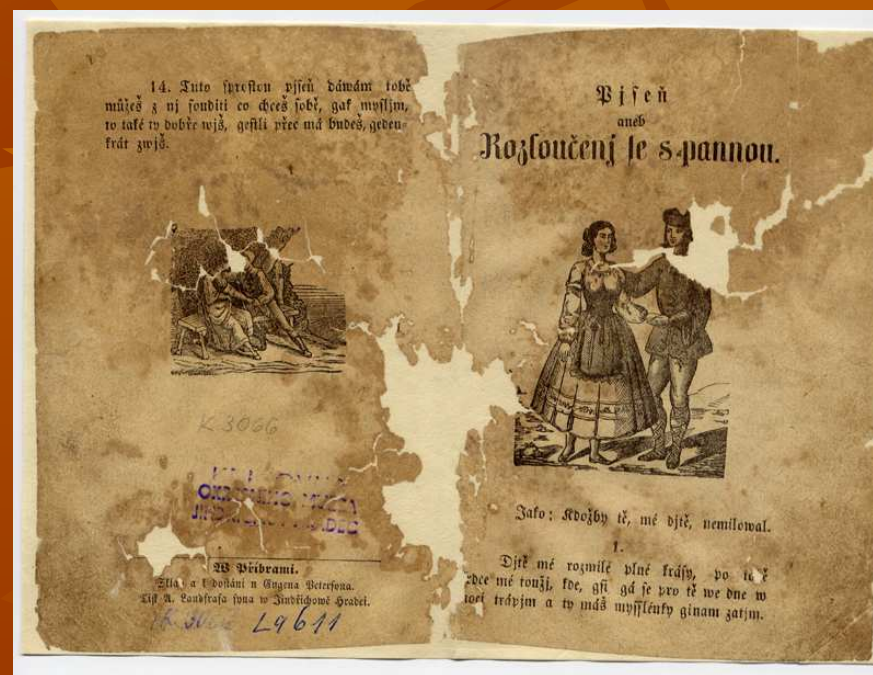 14. Tuto sprostou pjseň dáwám tobě
můžeš z nj souditi co chceš sobě, gak mysljm,
to také ty dobře wjš, gestli přec má budeš, geden-
krát zwjš.
K 3066
OKRESNÍHO MUZEA
W Přibrami.
a k dostání u Eugena Petersona.
Tisk A. Landfrasa syna w Jindřichowě Hradci.
L9611
Pjseň
aneb
Rozloučenj se s pannou.
Jako: Kdožby tě, mé djtě, nemilowal.
1.
Djtě mé rozmilé plné krásy, po tobě
srdce mé toužj, kde, gsi gá se pro tě we dne w
noci trápjm a ty máš myšlénky ginam zatjm.